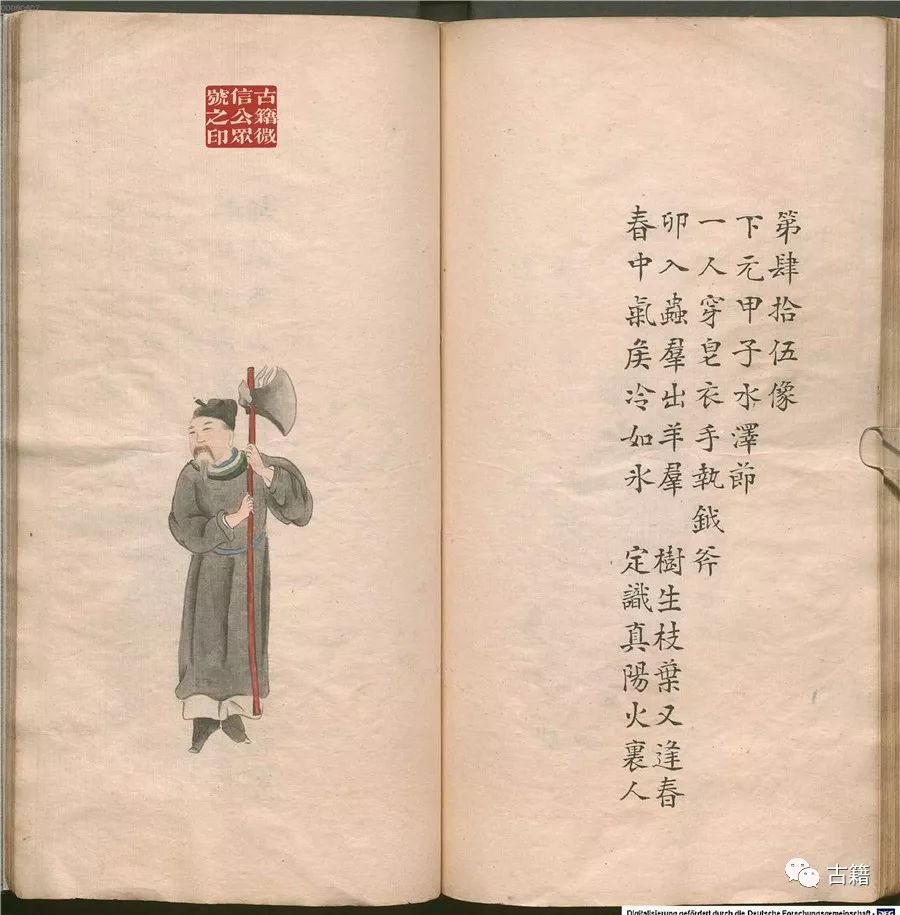 古籍微
信公眾
號之印
第肆拾伍像
下元甲子水澤節
一人穿皂衣手執鉞斧
卯入蟲羣出羊羣 樹生枝葉又逢春
春中氣矦冷如氷 定識真陽火裏人
古籍
Digitalisierung gefördert durch die Deutsche Forschungsgemeinschaft - DFG